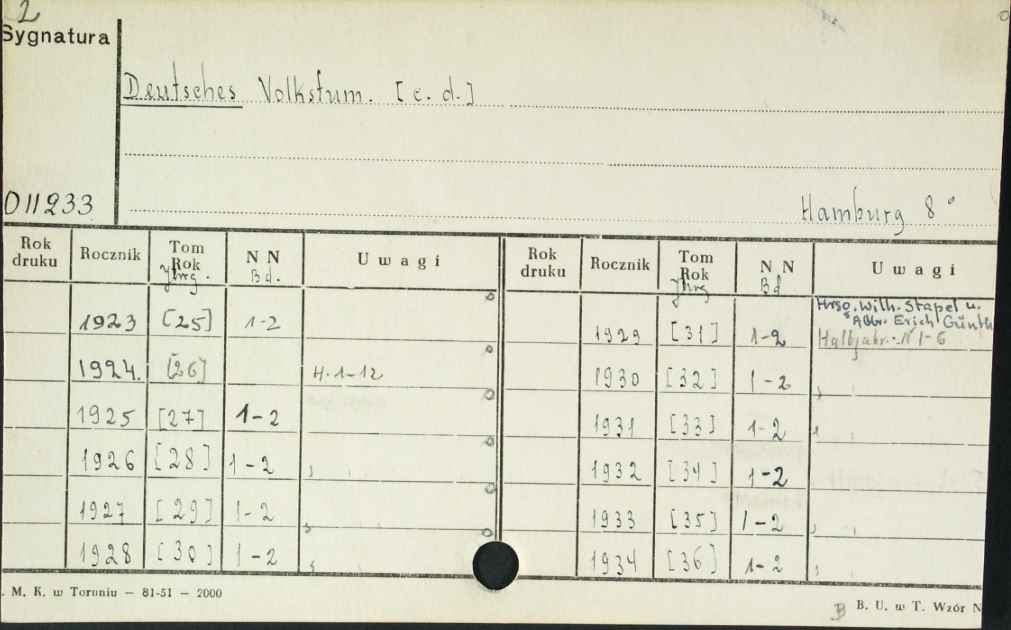 2
Sygnatura
Deutsches Volkstum. [c. d.]
011233
Hamburg 8°
Rok druku Rocznik Tom Rok Jhrg. N N Bd. Uwagi
1923 [25] 1-2
1924. [26] H. 1-12
1925 [27] 1-2
1926 [28] 1-2
1927 [29] 1-2
1928 [30] 1-2
Rok druku Rocznik Tom Rok Jhrg N N Bd Uwagi
Hrsg. Wilh. Stapel u.
Erich Günth
1929 [31] 1-2 Halbjahr. N 1-6
1930 [32] 1-2
1931 [33] 1-2
1932 [34] 1-2
1933 [35] 1-2
1934 [36] 1-2
. M. K. w Toruniu — 81-51 — 2000
B B. U. w T. Wzór N